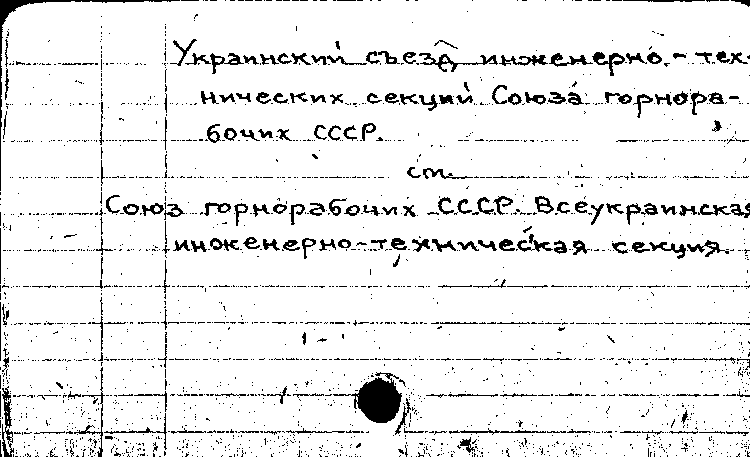 Украинский съезд инженерно-тех-
нических секций Союза горнора-
бочих СССР.
см.
Союз горнорабочих СССР. Всеукраинская
инженерно-техническая секция.